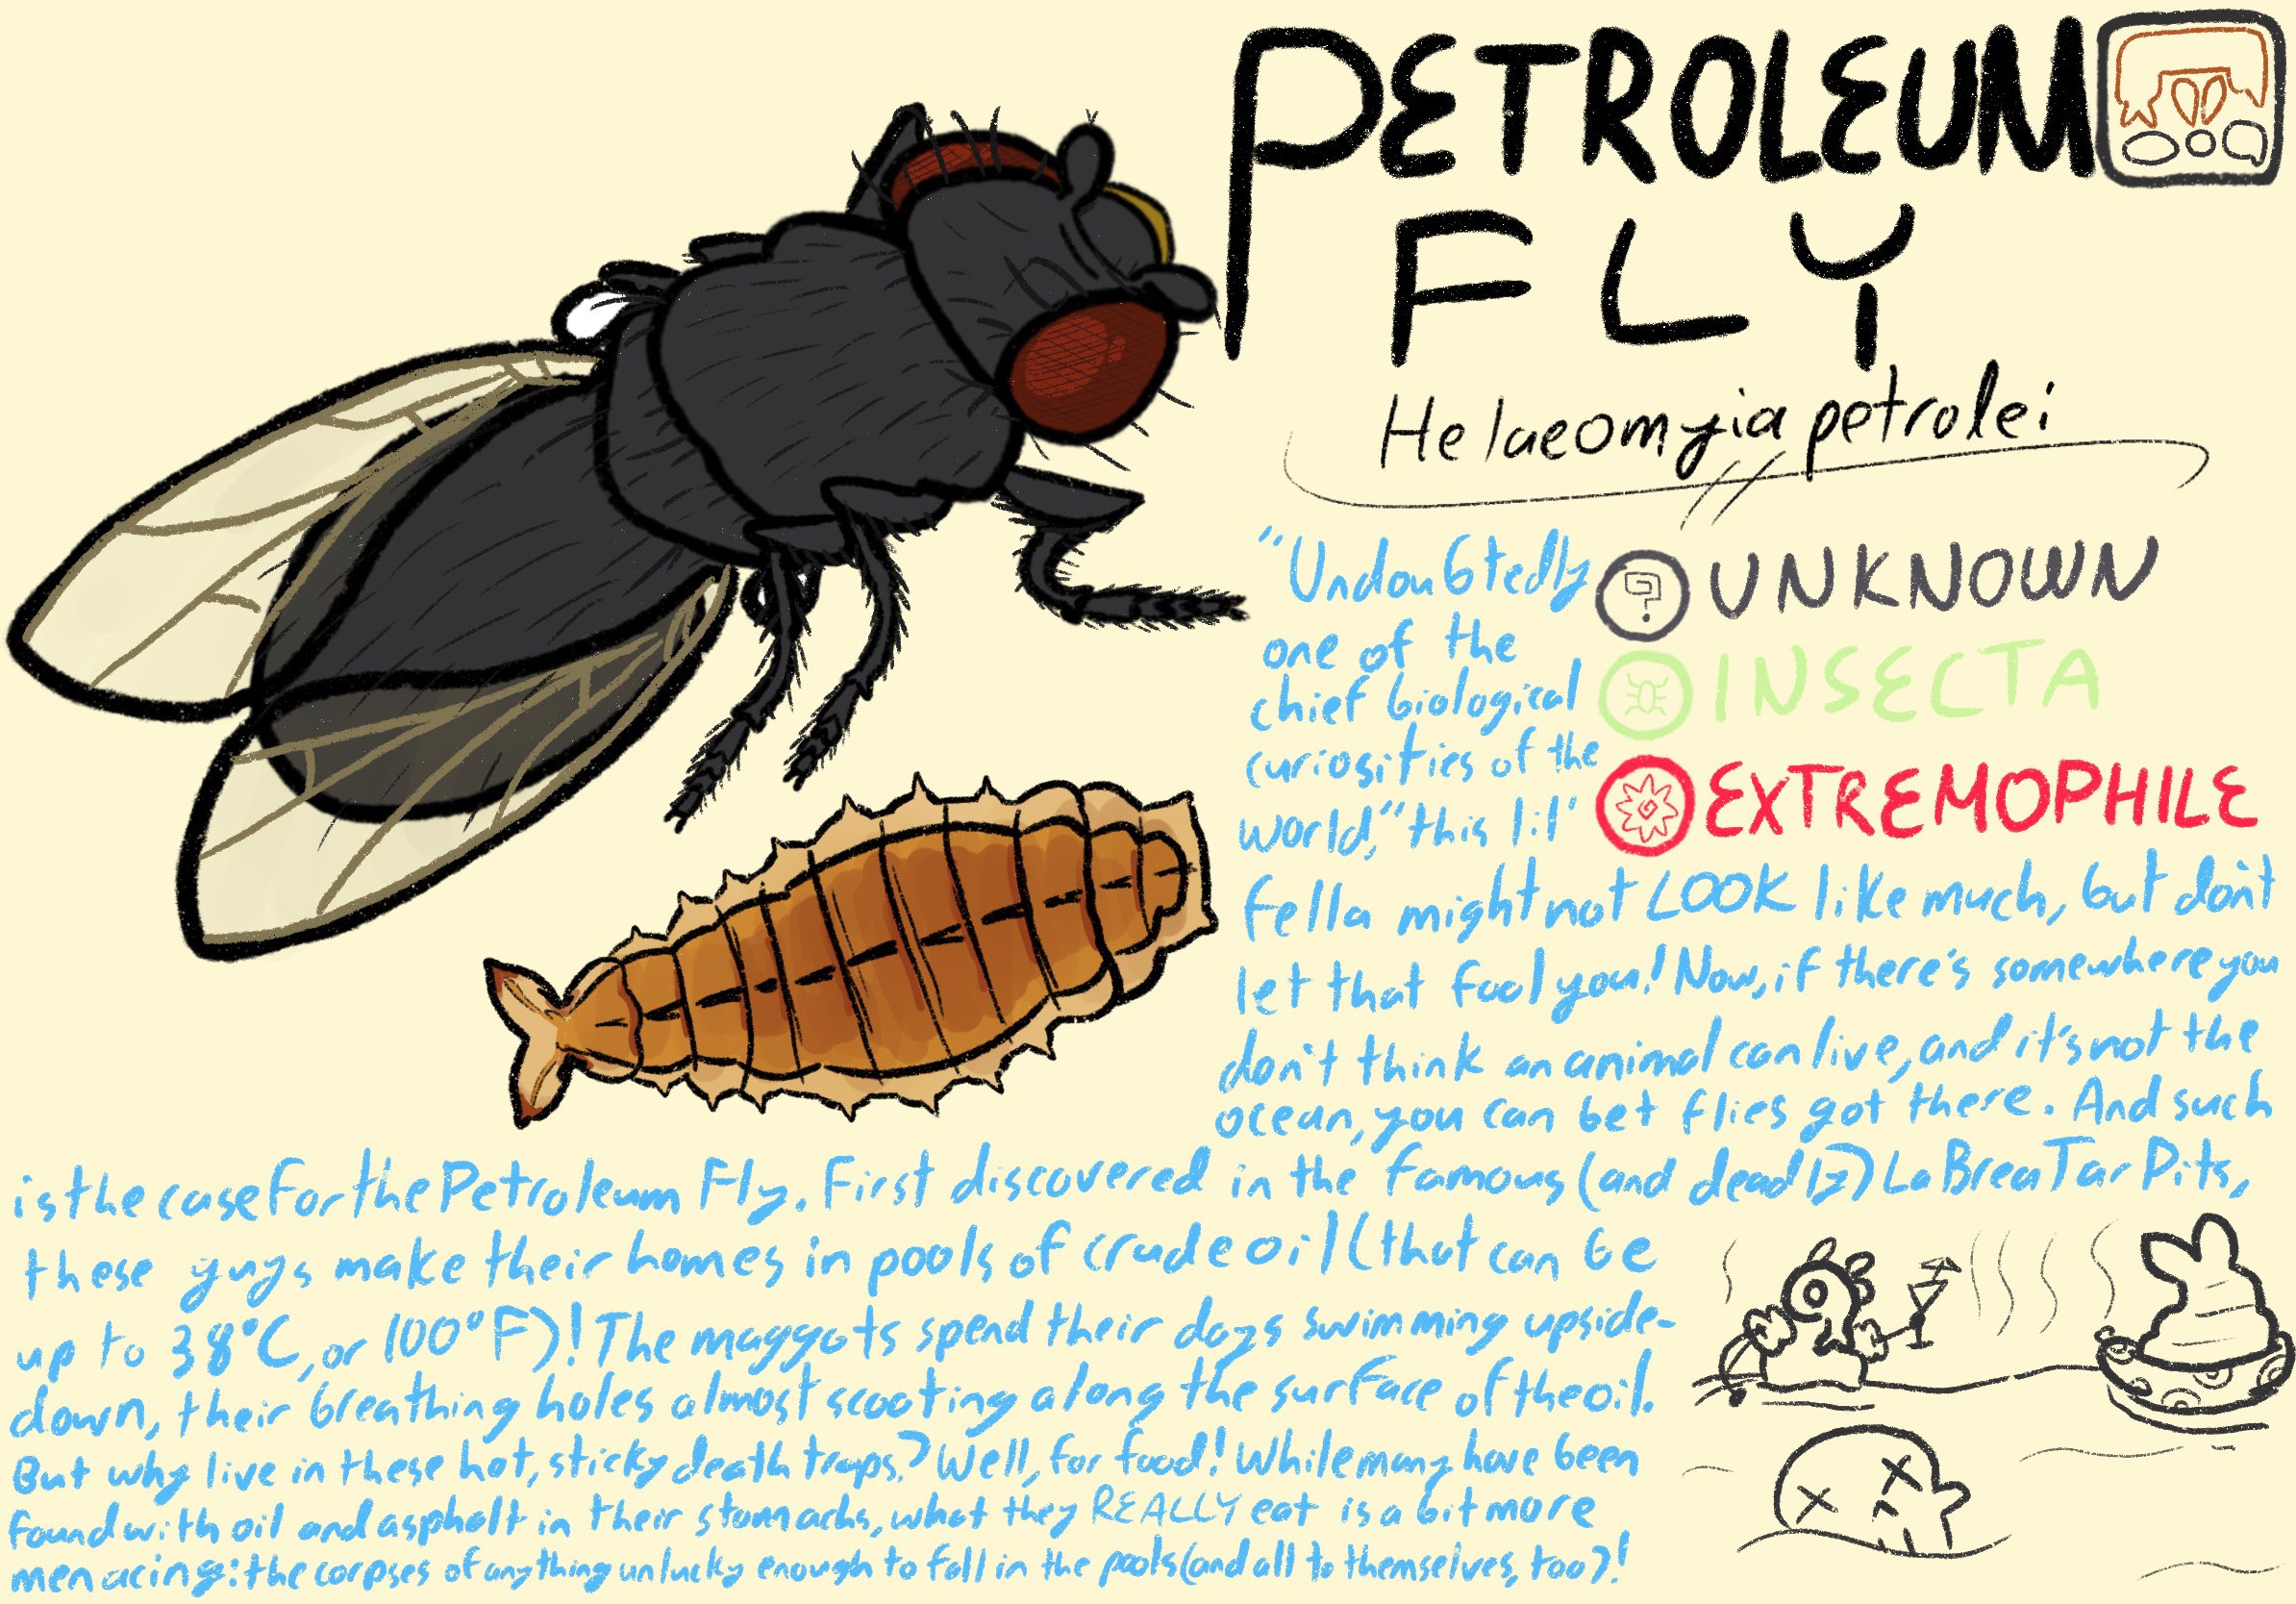 PETROLEUM
FLY
Helaeomyia petrolei
? UNKNOWN
INSECTA
EXTREMOPHILE
"Undoubtedly
one of the
chief biological
curiosities of the
world," this lil'
fella might not LOOK like much, but don't
let that fool you! Now, if there's somewhere you
don't think an animal can live, and it's not the
ocean, you can bet flies got there. And such
is the case for the Petroleum Fly. First discovered in the famous (and deadly) La Brea Tar Pits,
these guys make their homes in pools of crude oil (that can be
up to 38°C, or 100°F)! The maggots spend their days swimming upside-
down, their breathing holes almost scooting along the surface of the oil.
But why live in these hot, sticky death traps? Well, for food! While many have been
found with oil and asphalt in their stomachs, what they REALLY eat is a bit more
menacing: the corpses of anything unlucky enough to fall in the pools (and all to themselves, too)!